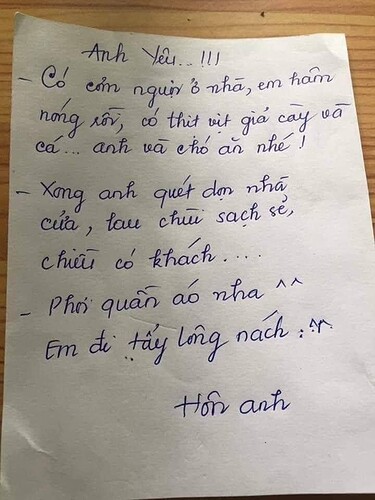 Anh Yêu...!!!
- Có cơm nguội ở nhà, em hâm
nóng rồi, có thịt vịt giả cầy và
cá... anh và chó ăn nhé!
- Xong anh quét dọn nhà
cửa, lau chùi sạch sẻ,
chiều có khách....
- Phơi quần áo nha ^^
Em đi tẩy lông nách :^^
Hôn anh